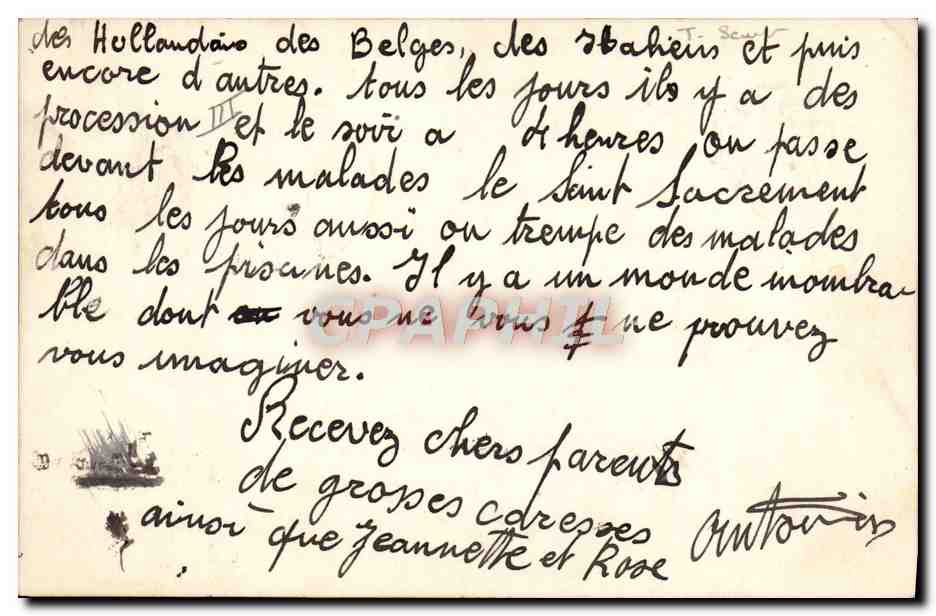 des Hollandais des Belges, des Italiens et puis
encore d'autres. tous les jours ils y a des
procession III et le soir a 4 heures on passe
devant les malades le Saint Sacrement
tous les jours aussi on trempe des malades
dans les piscines. Il y a un monde inombra-
ble dont vous ne vous ne prouvez
vous imaginer.
Recevez chers parents
de grosses caresses
ainsi que Jeannette et Rose
CPAPHIL